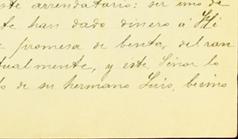 ste arrendatario: ser uno de
te han dado dinero á
e promesa de benta, del ran
tualmente, y este Señor lo
o de su hermano Luis, bi